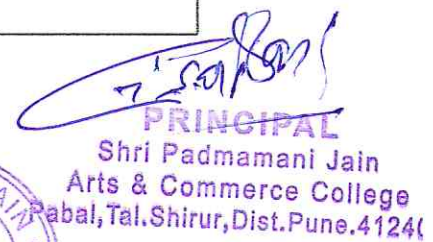 PRINCIPAL
Shri Padmamani Jain
Arts & Commerce College
Pabal,Tal.Shirur,Dist.Pune.4124
AIN